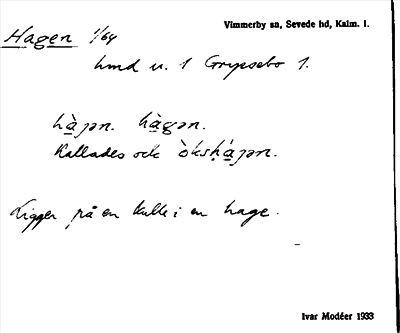 Hagen 1/64
Vimmerby sn, Sevede hd, Kalm. l.
lmd u. 1 Grypsebo 1.
hàjən. hàgən.
Kallades ock òkshájən.
Ligger på en kulle i en hage.
Ivar Modéer 1933